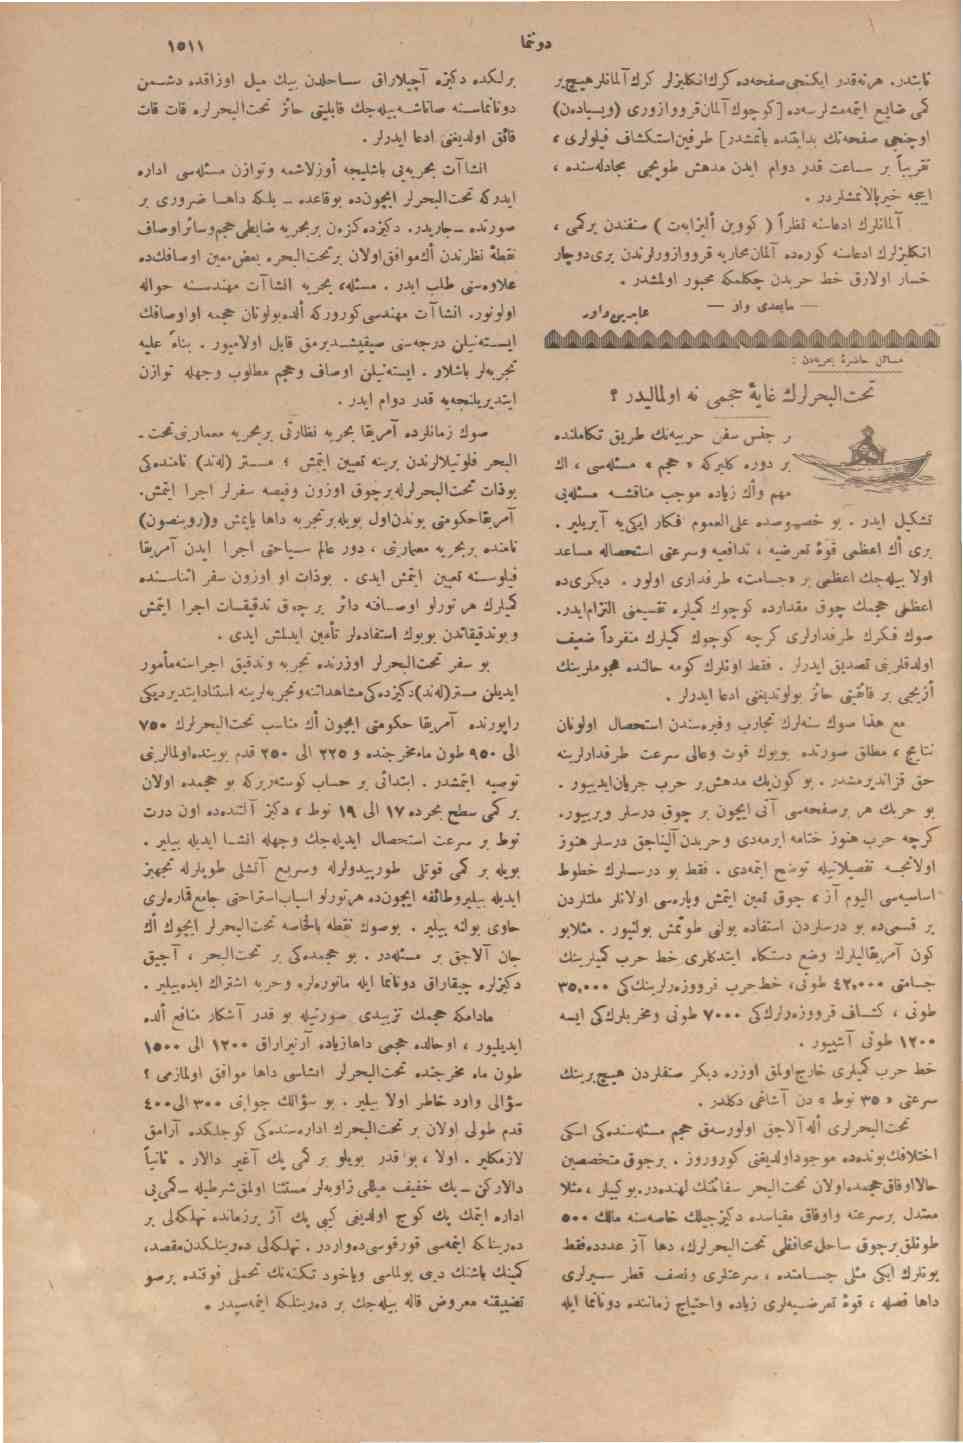 دوننما
١٥١١
ثابتدر. هرنه‌قدر ايكنجى صفحه‌ده كرك انكليزلر كرك آلمانلر هيچ بر
كمى ضايع ايتمه‌مشلرسه‌ده [كوچوك آلمان قروواز ورى (ويسباده‌ن)
اوچنجى صفحه‌نك بدايتنده باتمشدر] طرفين استكشاف فيلولرى ،
تقريباً بر ساعت قدر دوام ايدن مدهش طوپجى مجادله‌سنده ،
اييجه خيرپالانمشلردر .
آلمانلرك ادعاسنه نظراً ( كووين أليزابه‌ت ) صنفندن بركمى ،
انكليزلرك ادعاسنه كوره‌ده آلمان محاربه قروواز ورلرندن برى دوچار
خسار اولارق خط حربدن چكلمكه مجبور اولمشدر .
— مابعدى وار —
عابدين داور
مسائل حاضرۀ بحريه‌دن :
تحت‌البحرلرك غايۀ حجمى نه اولماليدر ؟
ر جنس سفن حربيه‌نك طريق تكاملنده
بر دوره كليركه « حجم » مسئله‌سى ، اك
مهم واك زياده موجب مناقشه مسئله‌يى
تشكيل ايدر . بو خصوصده على‌العموم فكار ايكى‌يه آيريلير .
برى اك اعظمى قوۀ تعرضيه ، تدافعيه وسرعتى استحصاله مساعد
اولا بيله‌جك اعظمى بر «جسامت» طرفدارى اولور . ديكرى‌ده
اعظمى حجمك چوق مقدارده كوچوك كميلره تقسيمنى التزام ايدر.
صوك فكرك طرفدارلرى كرچه كوچوك كميلرك منفرداً ضعيف
اولدقلرينى تصديق ايدرلر . فقط اونلرك كومه حالنده هجوملرينك
أزيجى بر فائقيتى حائز بولونديغنى ادعا ايدرلر .
مع هذا صوك سنه‌لرك تجارب وغيره‌سندن استحصال اولونان
نتايج ، مطلق صورتده بويوك قوت وعالى سرعت طرفدارلرينه
حق قزانديرمشدر . بو كون‌يك مدهش بر حرب جريان ايدييور .
بو حربك هر برصفحه‌سى آتى ايچون بر چوق درسلر ويرييور.
كرچه حرب هنوز ختامه ايرمه‌دى وحربدن آليناجق درسلر هنوز
اولانجه تفصيلاتيله توضح ايتمه‌دى . فقط بو درسلرك خطوط
اساسيه‌سى اليوم آز ، چوق تعين ايتمش وپاره‌سى اولانلر ملتلردن
بر قسمى‌ده بو درسلردن استفاده يولنى طوتمش بولنيور . مثلابو
كون آمريقاليلرك وضع دستكاه ايتدكلرى خط حرب كميلرينك
جسامتى ٤٢,٠٠٠ طونى، خط حرب قرووزه‌رلرينك‌كى ٣٥,٠٠٠
طونى ، كشاف قرووزه‌رلرك‌كى ٧٠٠٠ طونى ومخربلرك‌كى ايسه
١٢٠٠ طونى آشييور .
خط حرب كميلرى خارج اولمق اوزره ديكر صنفلردن هيچ برينك
سرعتى « ٣٥ نوط » دن آشاغى دكلدر .
تحت‌البحرلرى أله آلاجق اولورسه‌ق حجم مسئله‌سنده‌كى اسكى
اختلافك بونده‌ده موجود اولديغنى كورورز . برچوق متخصصين
حالا اوفاق حجمده اولان تحت‌البحر سفائنك لهنده‌در. بو كميلر ، مثلا
معتدل برسرعته واوفاق مقياسده دكيزجيلك خاصه‌سنه مالك ٥٠٠
طونلق برچوق ساحل محافظى تحت‌البحرلرك، دها آز عددده فقط
بونلرك ايكى مثلى جسامتده ، سرعتلرى ونصف قطر سيرلرى
داها فضله ، قوۀ تعرضيه‌لرى زياده واحتياج زماننده دونانما ايله
برلكده دكيزه آچيلاراق ساحلدن بيك ميل اوزاقده دشمن
دونانماسنه صاتاشه‌بيله‌جك قابليتى حائز تحت‌البحرلره قات قات
فائق اولديغنى ادعا ايدرلر .
انشاآت بحريه‌يى باشليجه أوزلاشمه وتوازن مسئله‌سى اداره
ايدركه تحت‌البحرلر ايچون‌ده بوقاعده ــ بلكه داها ضرورى بر
صورتده ــ جاريدر. دكيزده كزه‌ن بربحريه ضابطى حجم وسائر اوصاف
نقطۀ نظرندن اك موافق اولان برتحت‌البحره بعض معين اوصافك‌ده
علاوه‌سنى طلب ايدر . مسئله، بحريه انشاآت مهندسنه حواله
اولونور. انشاآت مهندسى كورورركه ألده بولونان حجمه او اوصافك
ايسته‌نيلن درجه‌سنى صيقيشديرمق قابل اولاميور . بناءً عليه
تجربه‌لر باشلار . ايسته‌نيلن اوصاف وحجم مطلوب وجهله توازن
ايتديريلنجه‌يه قدر دوام ايدر .
صوك زمانلرده آمريقا بحريه نظارتى بربحريه معمارينى تحت‌ـ
البحر فلوتيلالرندن برينه تعيين ايتمش ؛ مستر (له‌ند) نامنده‌كى
بوذات تحت‌البحرلرله برچوق اوزون وقيصه سفرلر اجرا ايتمش.
آمريقا حكومتى بوندن اول بويله برتجربه داها ياپمش و(روبنصون)
نامنده بربحريه معمارينى ، دور عالم سياحتى اجرا ايدن آمريقا
فيلوسنه تعيين ايتمش ايدى . بوذات او اوزون سفر اثناسنده
كميلرك هر تورلو اوصافنه دائر بر چوق تدقيقات اجرا ايتمش
وبوتدقيقاتدن بويوك استفاده‌لر تأمين ايدلمش ايدى .
بو سفر تحت‌البحرلر اوزرنده تجربه وتدقيق اجراسنه مأمور
ايديلن مستر (له‌ند) دكيزده‌كى مشاهداتنه وتجربه‌لرينه استنادا يتديرديكى
راپورنده آمريقا حكومتى ايچون اك مناسب تحت‌البحرلرك ٧٥٠
الى ٩٥٠ طون ماء مخرجنده و ٢٢٥ الى ٢٥٠ قدم بوينده اولمالرينى
توصيه ايتمشدر . ابتدائى بر حساب كوسته‌ريركه بو حجمده اولان
بر كمى سطح بحرده ١٧ الى ١٩ نوط ، دكيز آلتنده‌ده اون درت
نوط بر سرعت استحصال ايديله‌جك وجهله انشا ايديله بيلير .
بويله بر كمى قوتلى طورپيدولرله وسريع آتشلى طوپلرله تجهيز
ايديله بيلير وطائفه ايچون‌ده هرتورلو اسباب استراحتى جامع قماره‌لرى
حاوى بولنه بيلير . بوصوك نقطه بالخاصه تحت‌البحرلر ايچوك اك
جان آلاجق بر مسئله‌در . بو حجمده‌كى بر تحت‌البحر ، آچيق
دكيزلره چيقاراق دونانما ايله مانوره‌لره وحربه اشتراك ايده‌بيلير .
مادامكه حجمك تزييدى صورتيله بو قدر آشكار منافع ألده
ايديليور ، اوحالده حجمى داها زياده آرتيراراق ١٢٠٠ الى ١٥٠٠
طون ماء مخرجنده تحت‌البحرلر انشاسى داها موافق اولمازمى ؟
سؤالى وارد خاطر اولا بيلير . بو سؤالك جوابنى ٣٠٠ الى ٤٠٠
قدم طولى اولان بر تحت‌البحرك اداره‌سنده‌كى كوجلكده آرامق
لازمكلير . اولا ، بو قدر بويلو بر كمى پك آغير دالار . ثانياً
دالاركن ــ پك خفيف ميللى زاويه‌لر مستثنا اولمق شرطيله ــ كمى‌يى
اداره ايتمك پك كوچ اولديغى كبى پك آز برزمانده تهلكه‌لى بر
ده‌رينلكه ايتمه‌سى قورقوسى ده‌واردر . تهلكه‌لى ده‌رينلكدن مقصد،
كمينك باشنك ديبى بولماسى وياخود تكنه‌نك تحملى فوقنده برصو
تضييقنه معروض قاله بيله‌جك بر ده‌رينلكه ايتمه‌سيدر .